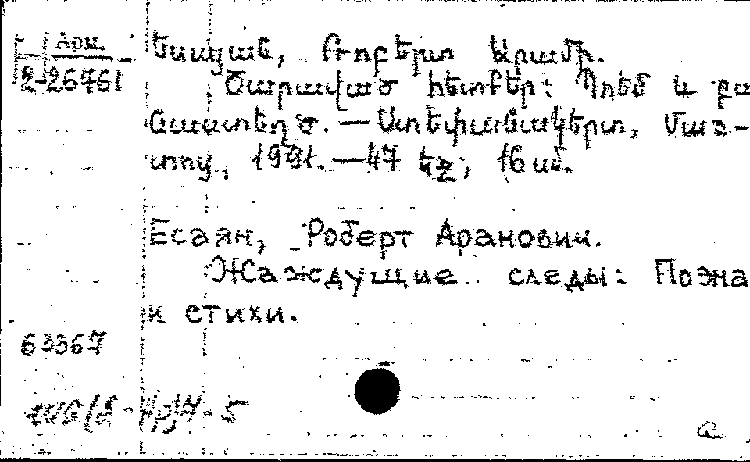 Арм.
2-26761
Եսայան, Ռոբերտ Արամի.
Ծարաված հետքեր: Պոեմ և բա-
նաստեղծ. — Ստեփանակերտ, Մաշ-
տոց, 1991. — 47 էջ; 16 սմ.
Есаян, Роберт Арамович.
Жаждущие следы: Поэма
и стихи.
63367